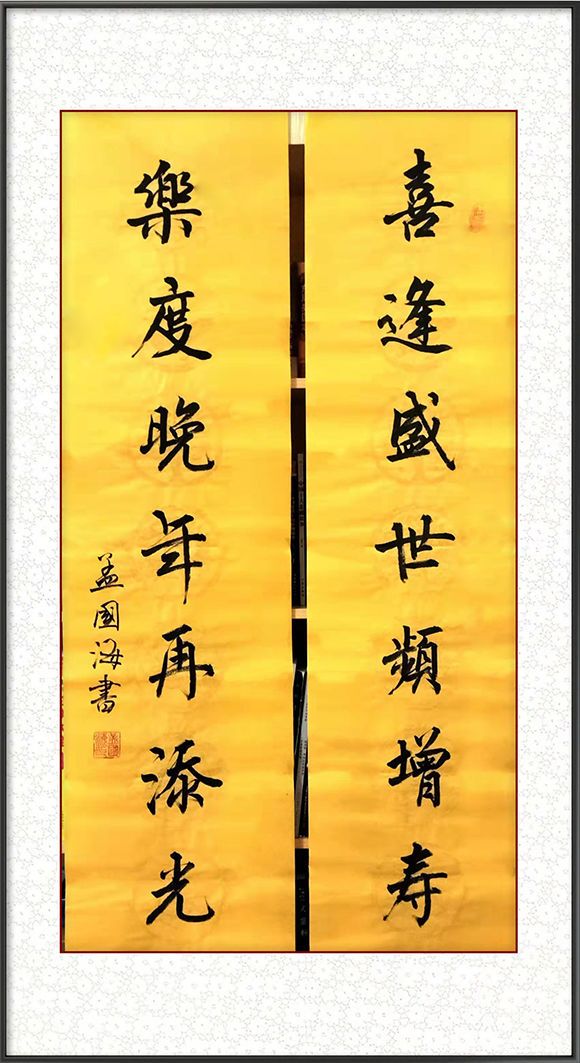 喜逢盛世頻增寿
樂度晚年再添光
孟國海書